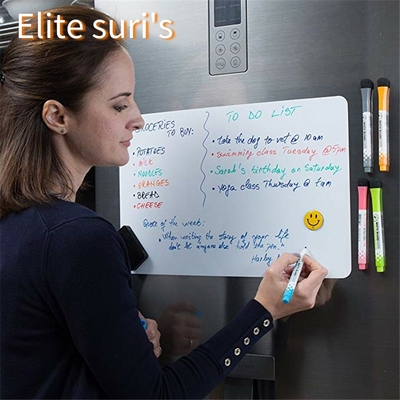 Elite suri's
GROCERIES
TO BUY:
POTATOES
MILK
NOODLES
ORANGES
BREAD
CHEESE
TO DO LIST
• take the dog to vet @ 10 am
• Swimming class Tuesday @5pm
• Sarah's birthday on Saturday
• yoga class Thursday @ 7am
Quote of the week:
"When writing the story of your life
don't let anyone else hold the pen."
Harley